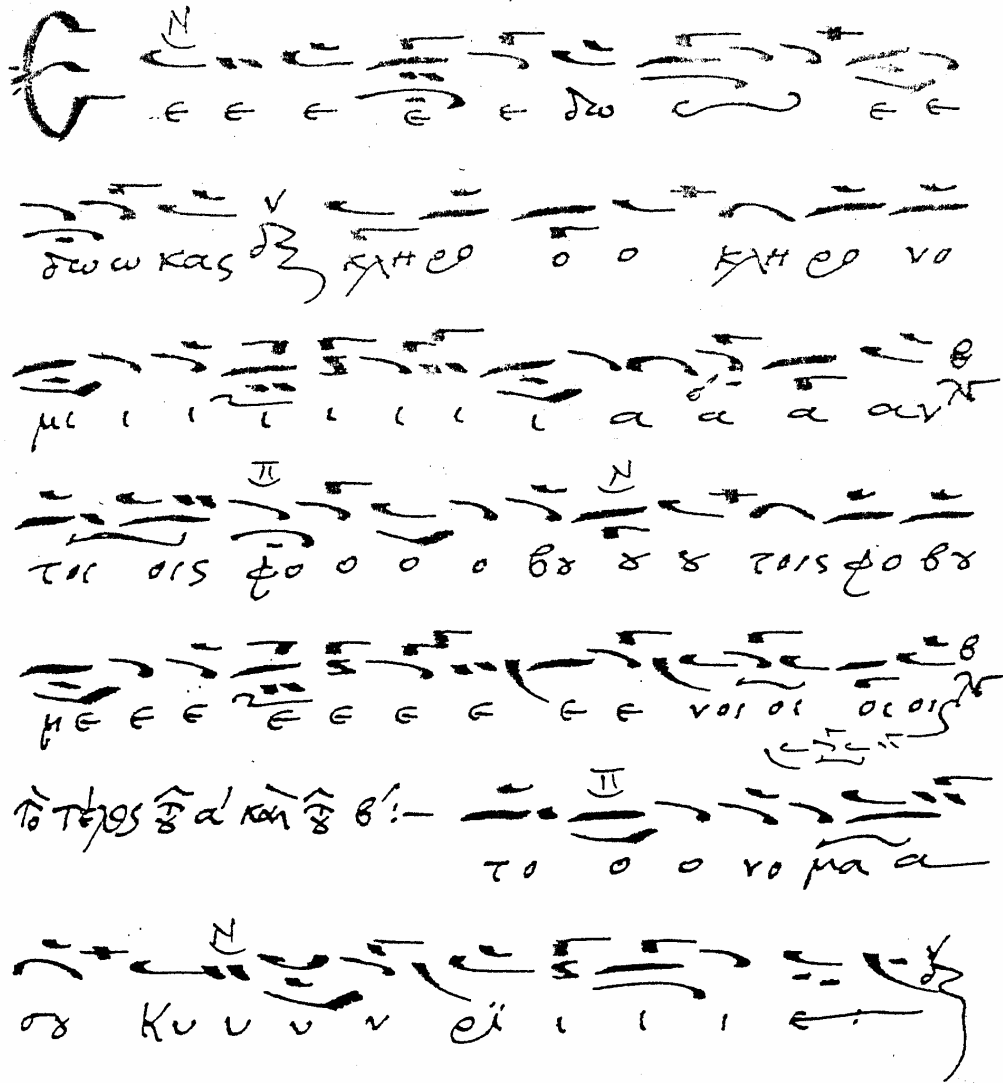 Ε ε ε ε ε ε δω ε ε
δω ω κας κλη ρο ο ο κλη ρο νο
μι ι ι ι ι ι ι ι α α α αν
τοι οις φο ο ο ο βȣ ȣ ȣ τοις φο βȣ
με ε ε ε ε ε ε ε ε νοι οι οι οις
Τὸ τέλος τȣ͂ α΄ καὶ τȣ͂ β΄:— το ο ο νο μα α
σȣ Κυ υ υ υ ρϊ ι ι ι ε :